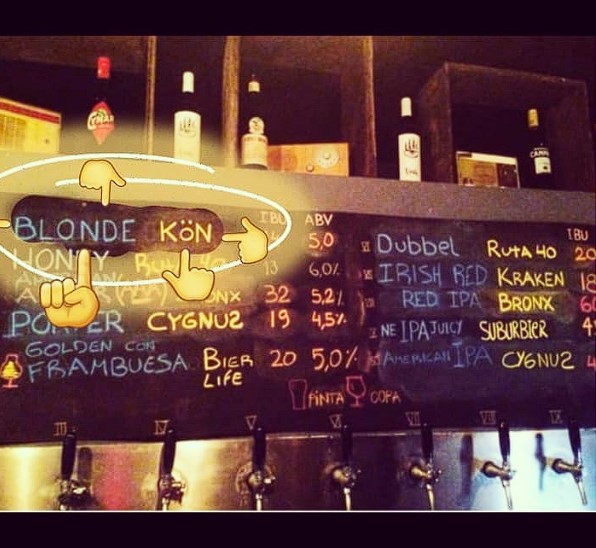 CYNAR
BLONDE KöN
IBU ABV
5,0
HONEY
13 6,0%
BRONX 32 5,2%
PORTER CYGNUS 19 4,5%
GOLDEN CON
FRAMBUESA BIER 20 5,0%
LIFE
PINTA COPA
IBU
Dubbel RUTA 40 20
IRISH RED KRAKEN 18
RED IPA BRONX
NE IPA JUICY SUBURBIER
AMERICAN IPA CYGNUS
III IV V VI VII VIII IX